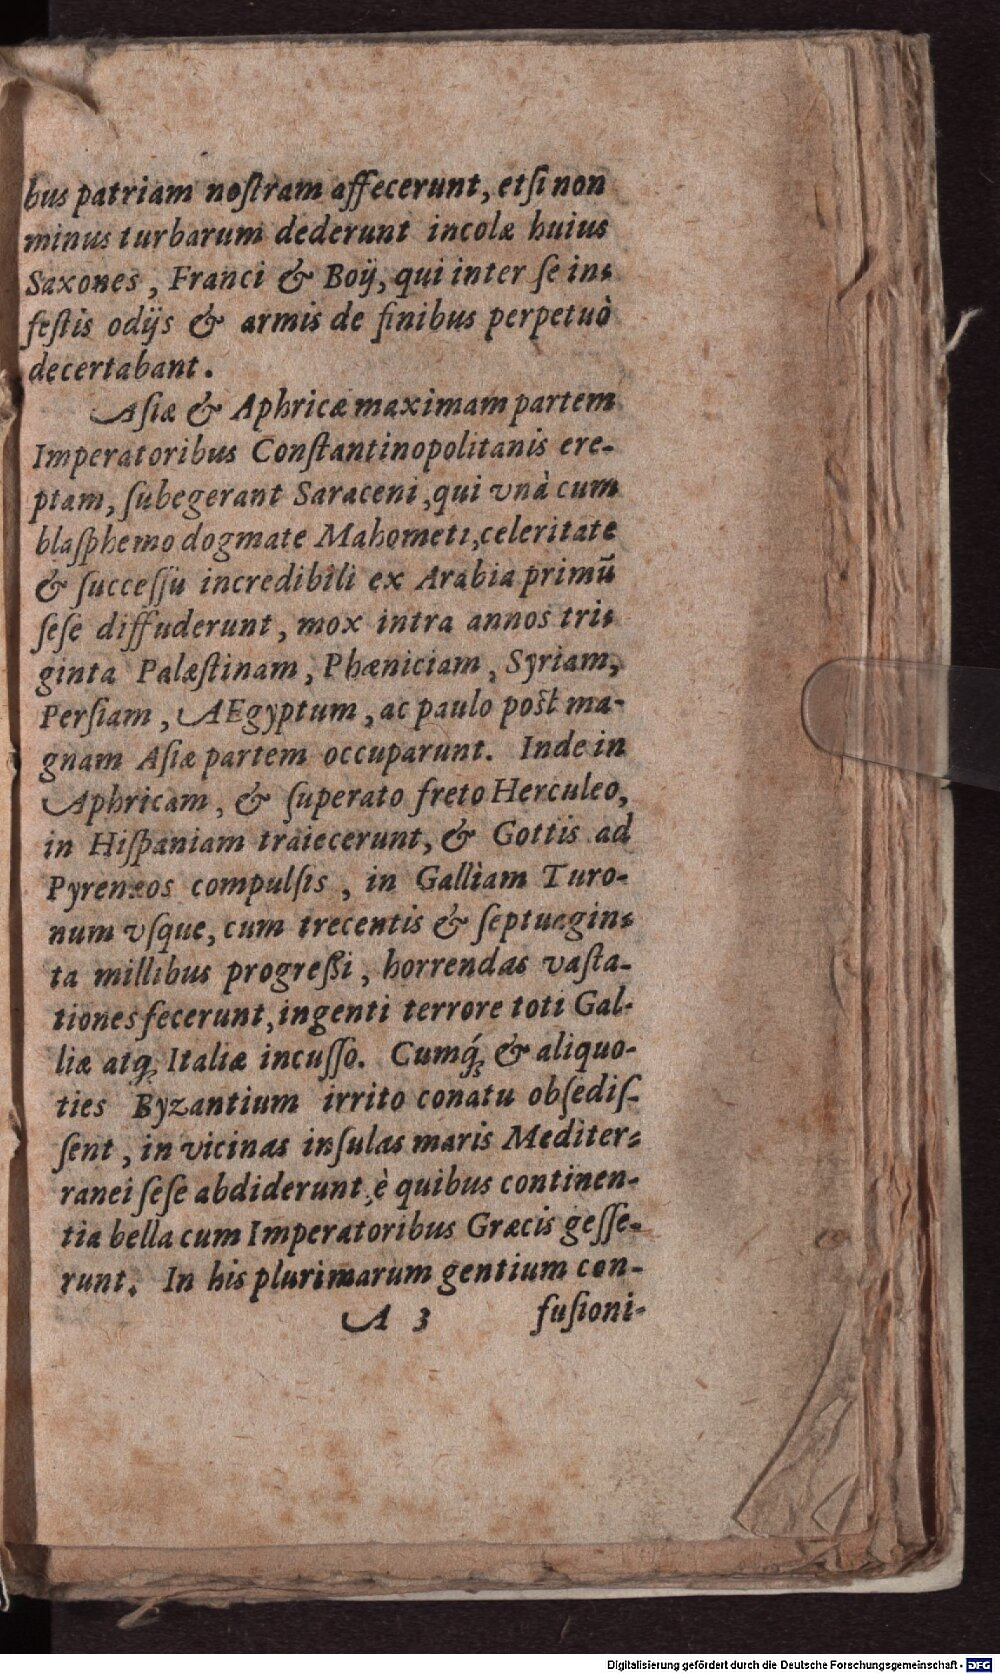 bus patriam noſtram affecerunt, etſi non
minus turbarum dederunt incolæ huius
Saxones, Franci & Boij, qui inter ſe in-
feſtis odijs & armis de finibus perpetuò
decertabant.
Aſiæ & Aphricæ maximam partem
Imperatoribus Conſtantinopolitanis ere-
ptam, ſubegerant Saraceni, qui vnà cum
blaſphemo dogmate Mahometi, celeritate
& ſucceſſu incredibili ex Arabia primū
ſeſe diffuderunt, mox intra annos tri-
ginta Palæſtinam, Phæniciam, Syriam,
Perſiam, AEgyptum, ac paulo poſt ma-
gnam Aſiæ partem occuparunt. Inde in
Aphricam, & ſuperato freto Herculeo,
in Hiſpaniam traiecerunt, & Gottis ad
Pyrenæos compulſis, in Galliam Turo-
num vſque, cum trecentis & ſeptuagin-
ta millibus progreßi, horrendas vaſta-
tiones fecerunt, ingenti terrore toti Gal-
liæ atq; Italiæ incuſſo. Cumq́; & aliquo-
ties Byzantium irrito conatu obſediſ-
ſent, in vicinas inſulas maris Mediter-
ranei ſeſe abdiderunt, è quibus continen-
tia bella cum Imperatoribus Græcis geſſe-
runt. In his plurimarum gentium con-
A 3 fuſioni-
Digitalisierung gefördert durch die Deutsche Forschungsgemeinschaft - DFG